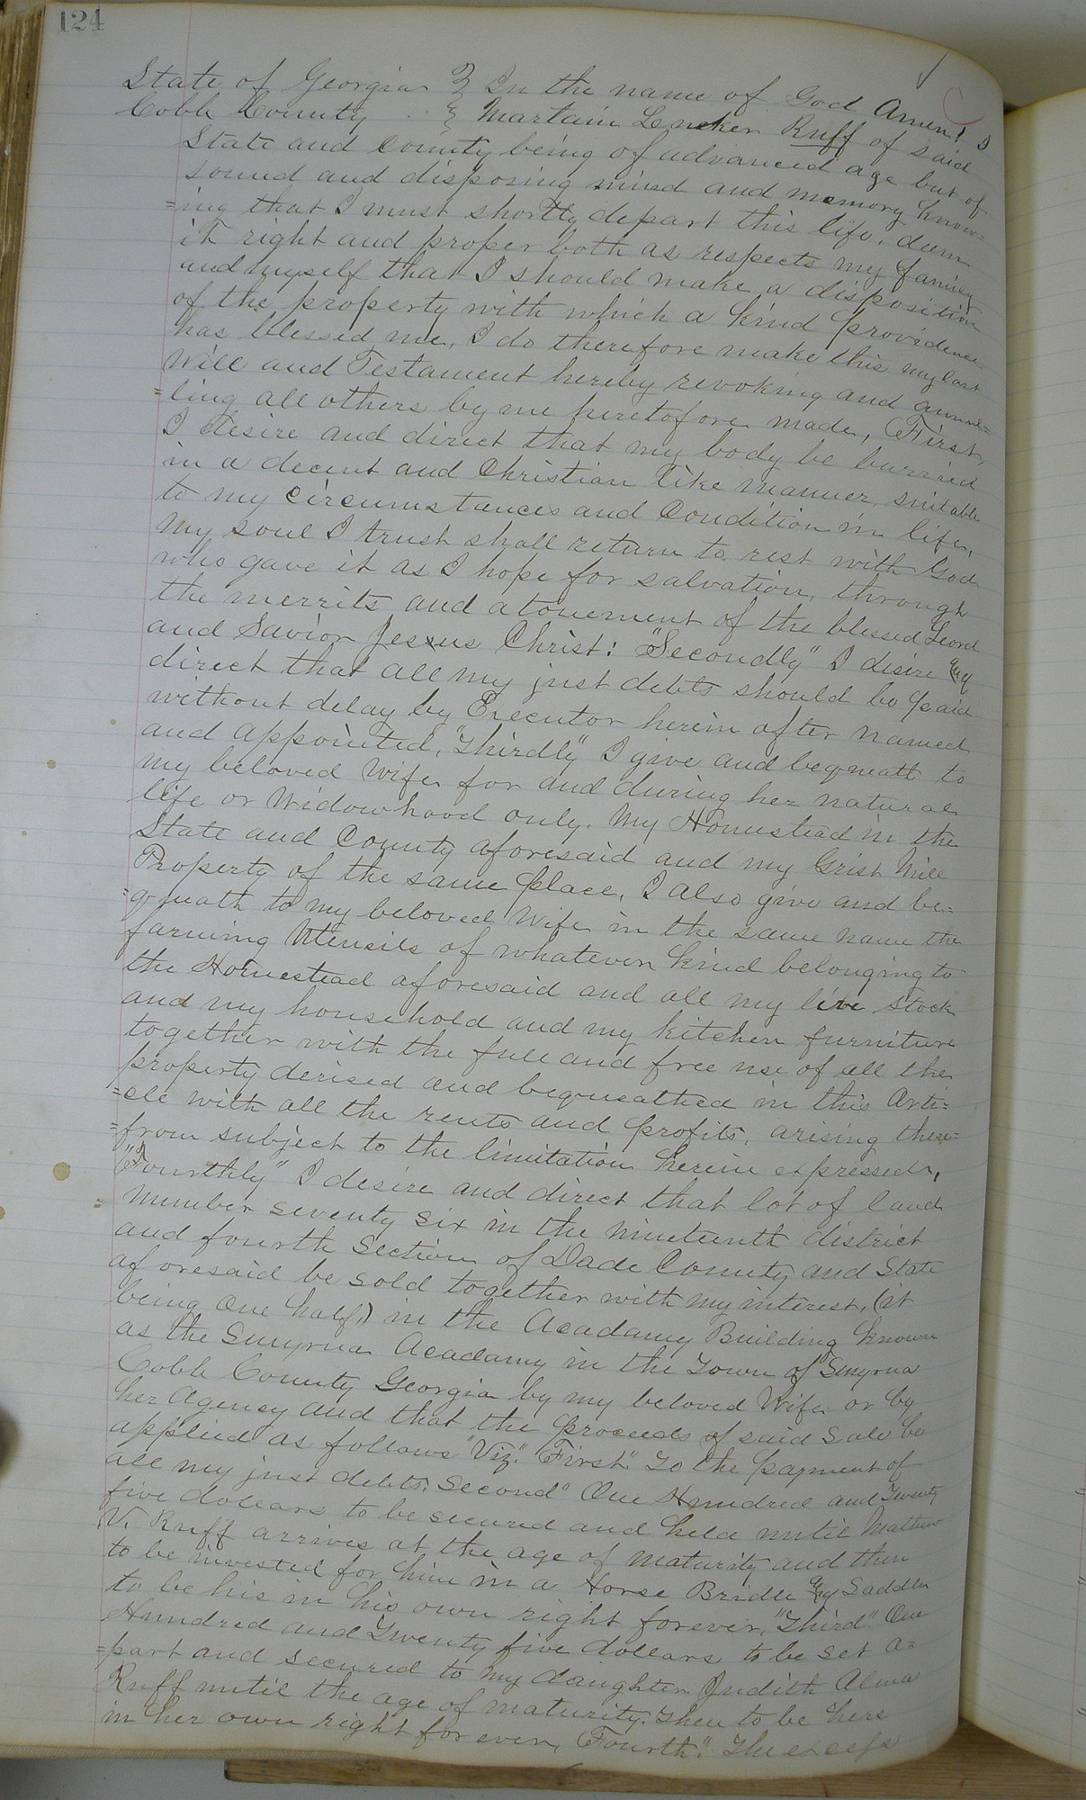 124
State of Georgia } In the name of God Amen! I
Cobb County } Martain Lenoker Ruff of said
State and County being of advanced age but of
sound and disposing mind and memory know=
=ing that I must shortly depart this life, deem
it right and proper both as respects my family
and myself that I should make a disposition
of the property with which a kind providence
has blessed me, I do therefore make this my last
Will and Testament hereby revoking and annul=
=ling all others by me heretofore made, "First,
I desire and direct that my body be burried
in a decent and Christian like manner suitable
to my circumstances and Condition in life,
my soul I trust shall return to rest with God
who gave it as I hope for salvation, through
the merrits and atonement of the blessed Leord
and Savior Jesus Christ: "Secondly" I desire &
direct that all my just debts should be paid
without delay by Executor herein after named
and appointed, "Thirdly" I give and bequeath to
my beloved Wife for and during her natural
life or Widowhood only. My Homestead in the
State and County aforesaid and my Grist Mill
Property of the same place, I also give and be=
=queath to my beloved Wife in the same name the
farming Utensils of whatever kind belonging to
the Homestead aforesaid and all my live stock
and my household and my kitchen furniture
together with the full and free use of all the
property devised and bequeathed in this Arti=
=cle with all the rents and profits, arising there=
=from subject to the limitation herein expressed,
"Fourthly" I desire and direct that lot of land
number seventy six in the nineteenth district
and fourth Section of Dade County and State
aforesaid be sold together with my interest, (it
being One half,) in the Acadamy Building known
as the Smyrna Acadamy in the Town of Smyrna
Cobb County Georgia by my beloved Wife or by
her Agency and that the proceeds of said Sale be
applied as follows "Viz." "First." To the payment of
all my just debts. Second" One Hundred and Twenty
five dollars to be secured and held until Matthew
V. Ruff arrives at the age of maturity and then
to be invested for him in a Horse Bridle & Saddle
to be his in his own right forever, "Third" One
Hundred and Twenty five dollars to be set a=
=part and secured to my daughter Judith Alma
Ruff until the age of maturity. Then to be hers
in her own right for ever, "Fourth." The excess